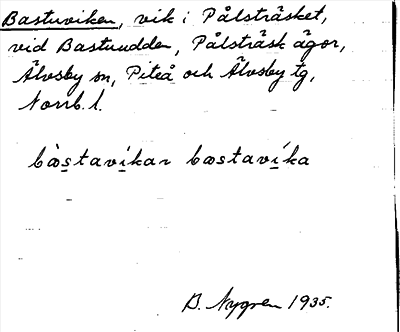 Bastuviken, vik i Pålsträsket,
vid Bastuudden, Pålsträsk ägor,
Älvsby sn, Piteå och Älvsby tg,
Norrb. l.
bàs̲tavi̲kar bastaví̲ka
B. Nygren 1935.